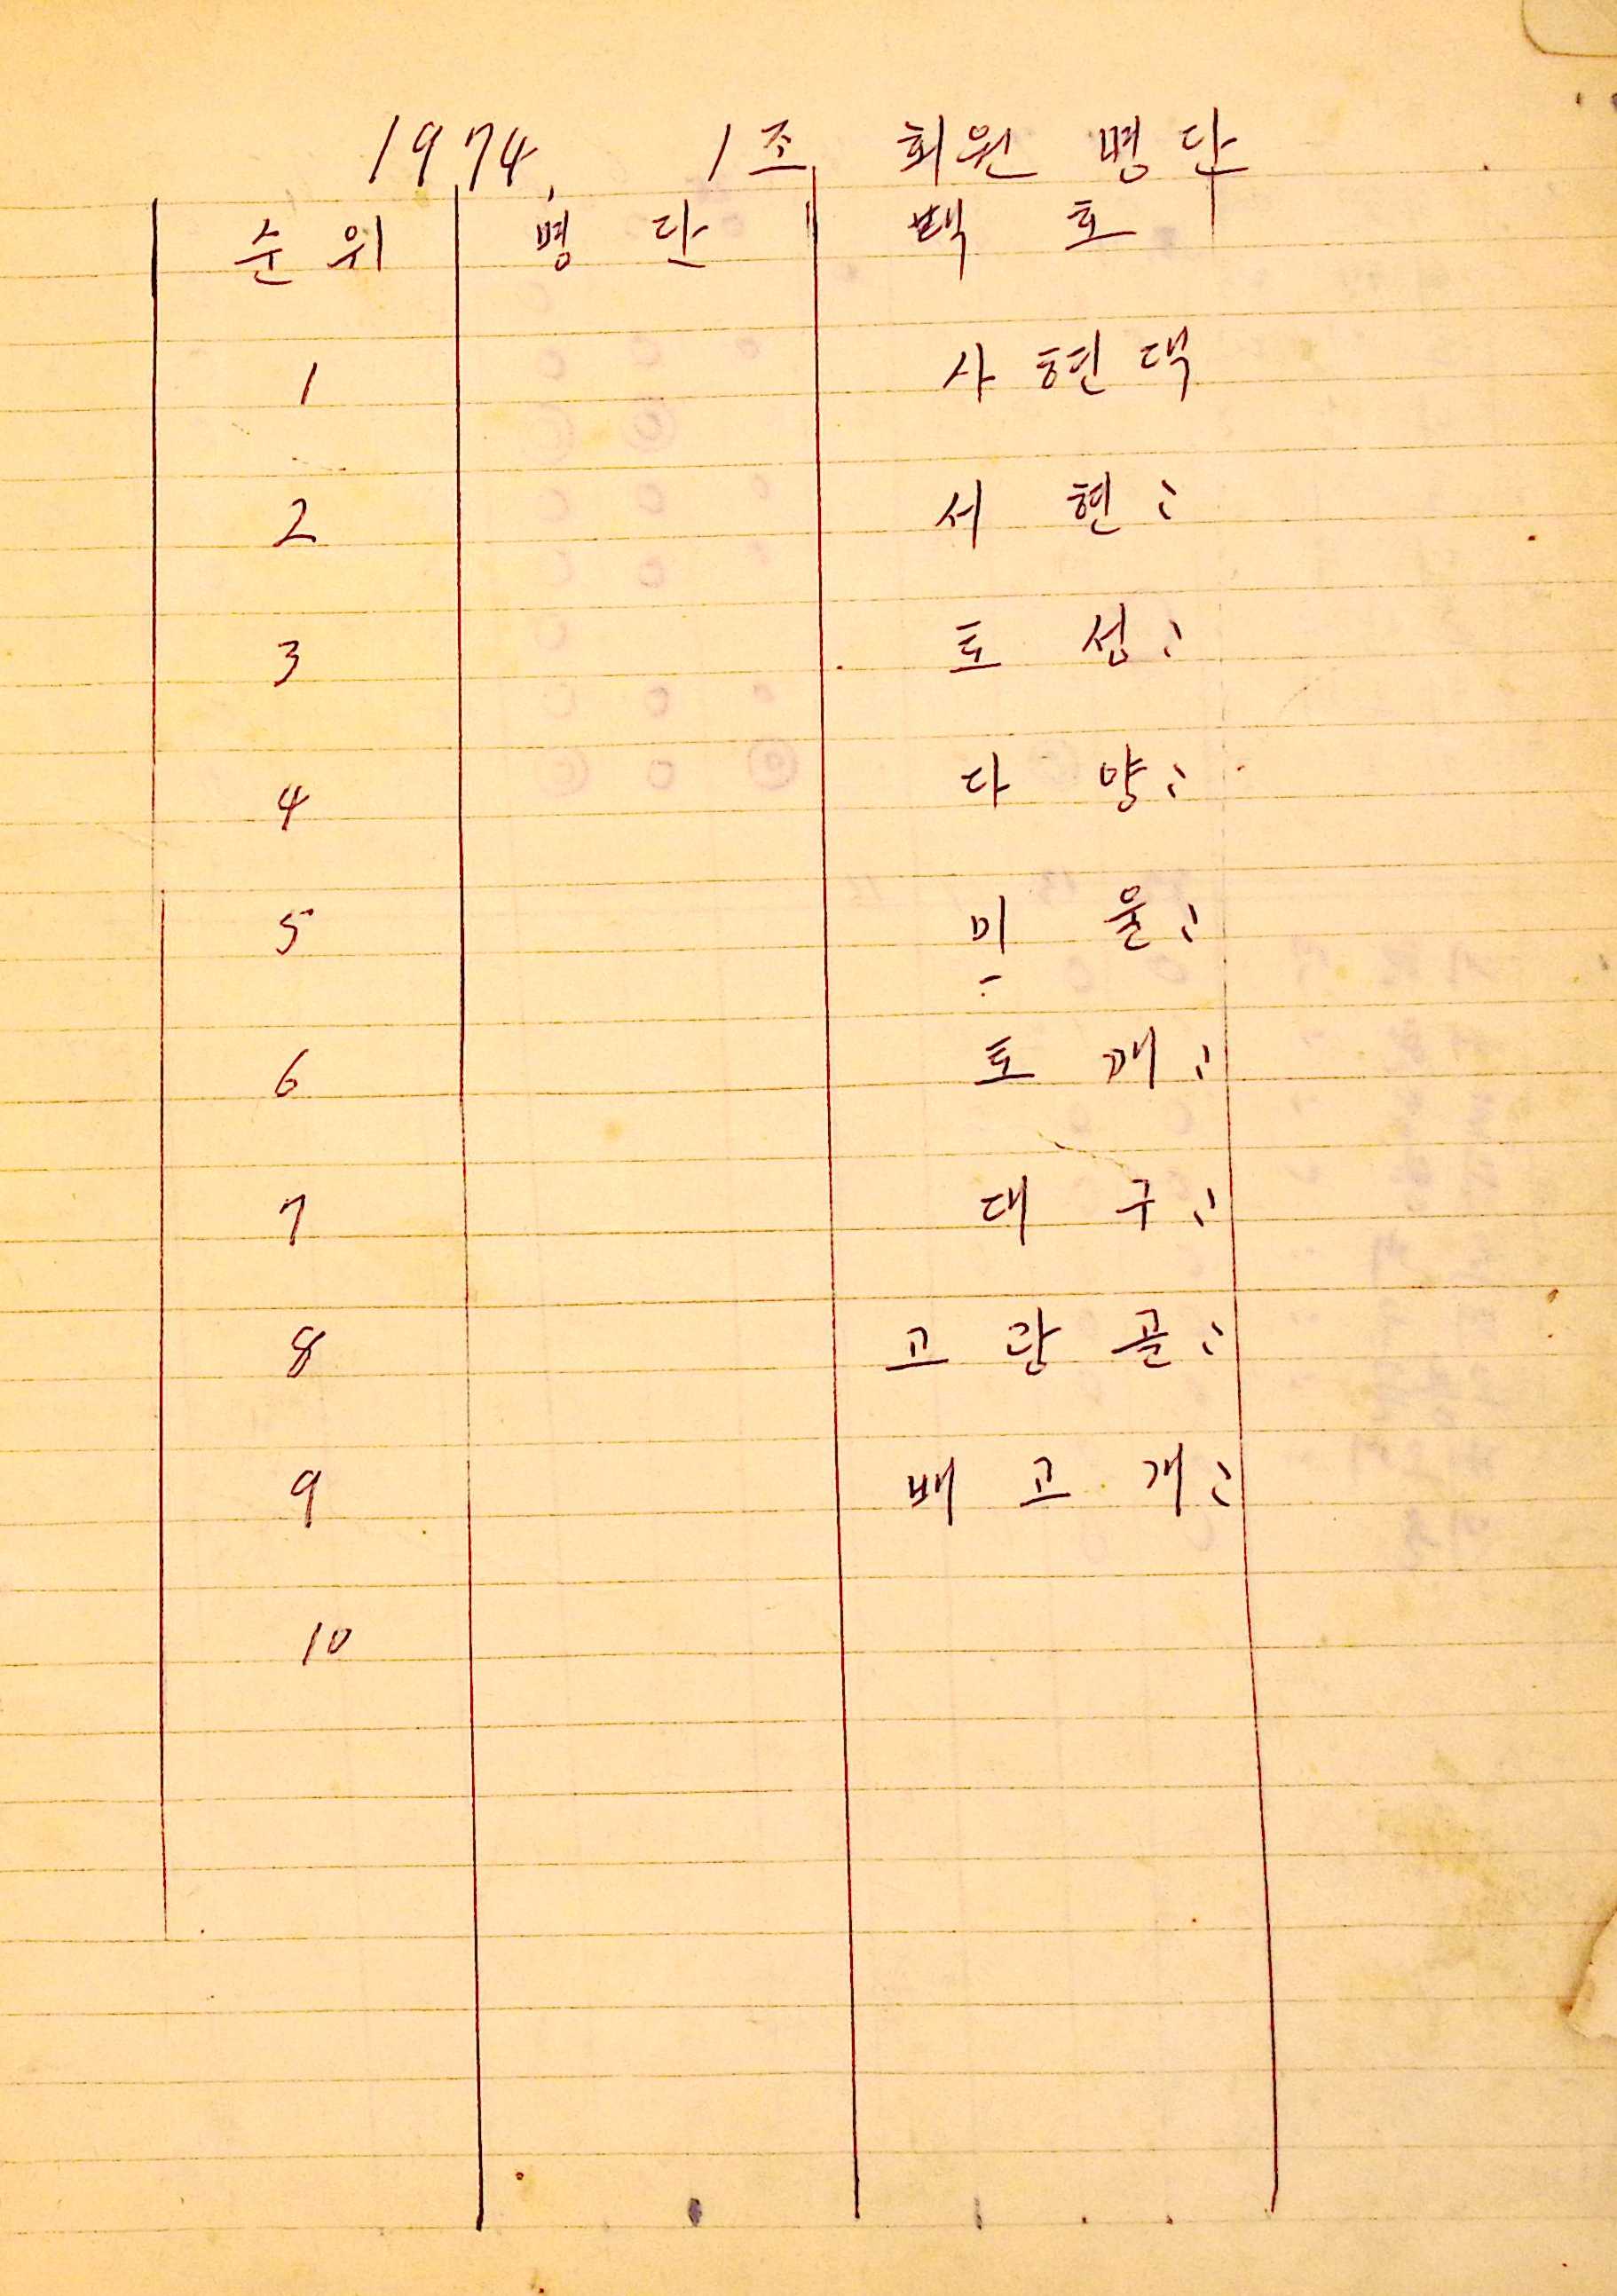 1974. 1조 회원 명단
순위 명단 택호
1 사현댁
2 서현〃
3 토성〃
4 다양〃
5 미율〃
6 토깨〃
7 대구〃
8 고랑골〃
9 배고개〃
10